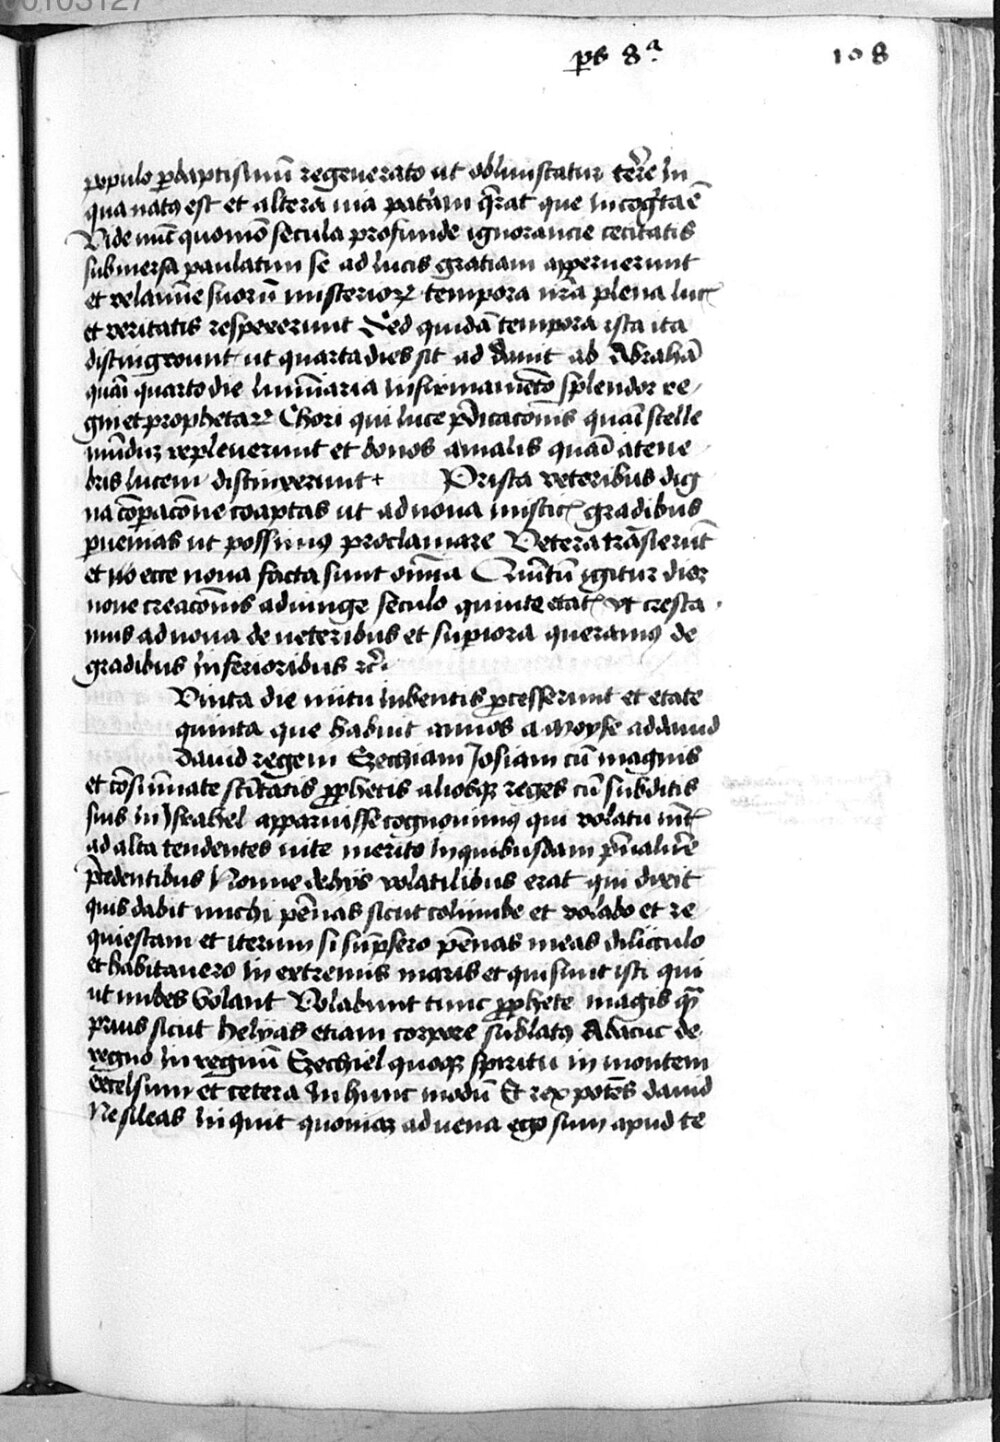 00103127
ps 8ᵃ 108
populo ꝑ baptismū regenerato ut obliuiscatur te're in
qua natꝰ est et altera uia pat'am q̄rat que incog'ta ē
Vide nūc quomō secula profunde ignorancie cecitatis
submersa paulatim se ad lucis gratiam apperuerunt
et velamīe suorū misterioꝝ tempora nr̄a plena luc
et veritatis respexerunt Sed quidā tempora ista ita
distingwunt ut quarta dies sit ad dauit ab Abrahā
quā quarto die lumīaria in firmamēto splendor re
gni et prophetaꝝ Chori qui luce p̄dicacōnis quā stelle
mūdū repleuerunt et bonos a malis quā a tene
bris lucem distinxerunt + Pr ista veteribus dig
na cōꝑacōne coaptas ut ad noua mistic gradibus
ꝑuenias ut possimꝰ proclamare Vetera trāsierūt
et ecce noua facta sunt om̄ia Quītū igitur diem
noue creacōnis adiunge seculo quinte etat ut cresca
mus ad noua de ueteribus et suꝑiora queramꝰ de
gradibus inferioribus ꝛcͣ
Vinta die nutu iubentis ꝓcesserunt et etate
quinta que habuit annos a moyse ad dauid
dauid regem Ezechiam Josiam cū magnis
et cōsūmate sc̄itatis ꝓphetis aliosqꝫ reges cū subditis
suis in Israhel apparuisse cognouimꝰ qui volatu mēt
ad alta tendentes uite merito in quibusdam
p̄cedentibus Nonne de hijs volatilibus erat qui dixit
quis dabit michi pēnas sicut columbe et volabo et re
quiescam et iterum si sūpsero pēnas meas diliculo
et habitauero in extremis maris et qui sunt isti qui
ut nubes volant Volabunt tunc ꝓphete magis qͣ
prius sicut helyas etiam corpore sublatꝰ Abacuc de
regno in regnū Ezechiel quoqꝫ spiritu in montem
excelsum et cetera in hunc modū Et rex potēs dauid
Ne sileas inquit quoniaꝫ aduena ego sum apud te